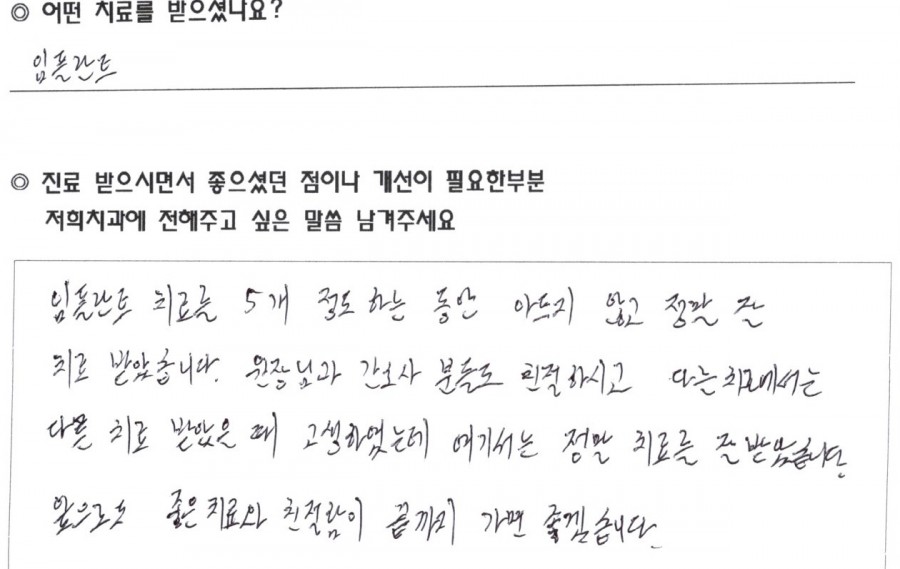 ◎ 어떤 치료를 받으셨나요?
임플란트
◎ 진료 받으시면서 좋으셨던 점이나 개선이 필요한부분
저희치과에 전해주고 싶은 말씀 남겨주세요
임플란트 치료를 5개 정도 하는 동안 아프지 않고 정말 잘
치료 받았습니다. 원장님과 간호사 분들도 친절하시고 다른치과에서는
다른 치료 받았을 때 고생하였는데 여기서는 정말 치료를 잘받았습니다.
앞으로도 좋은치료와 친절함이 끝까지 가면 좋겠습니다.